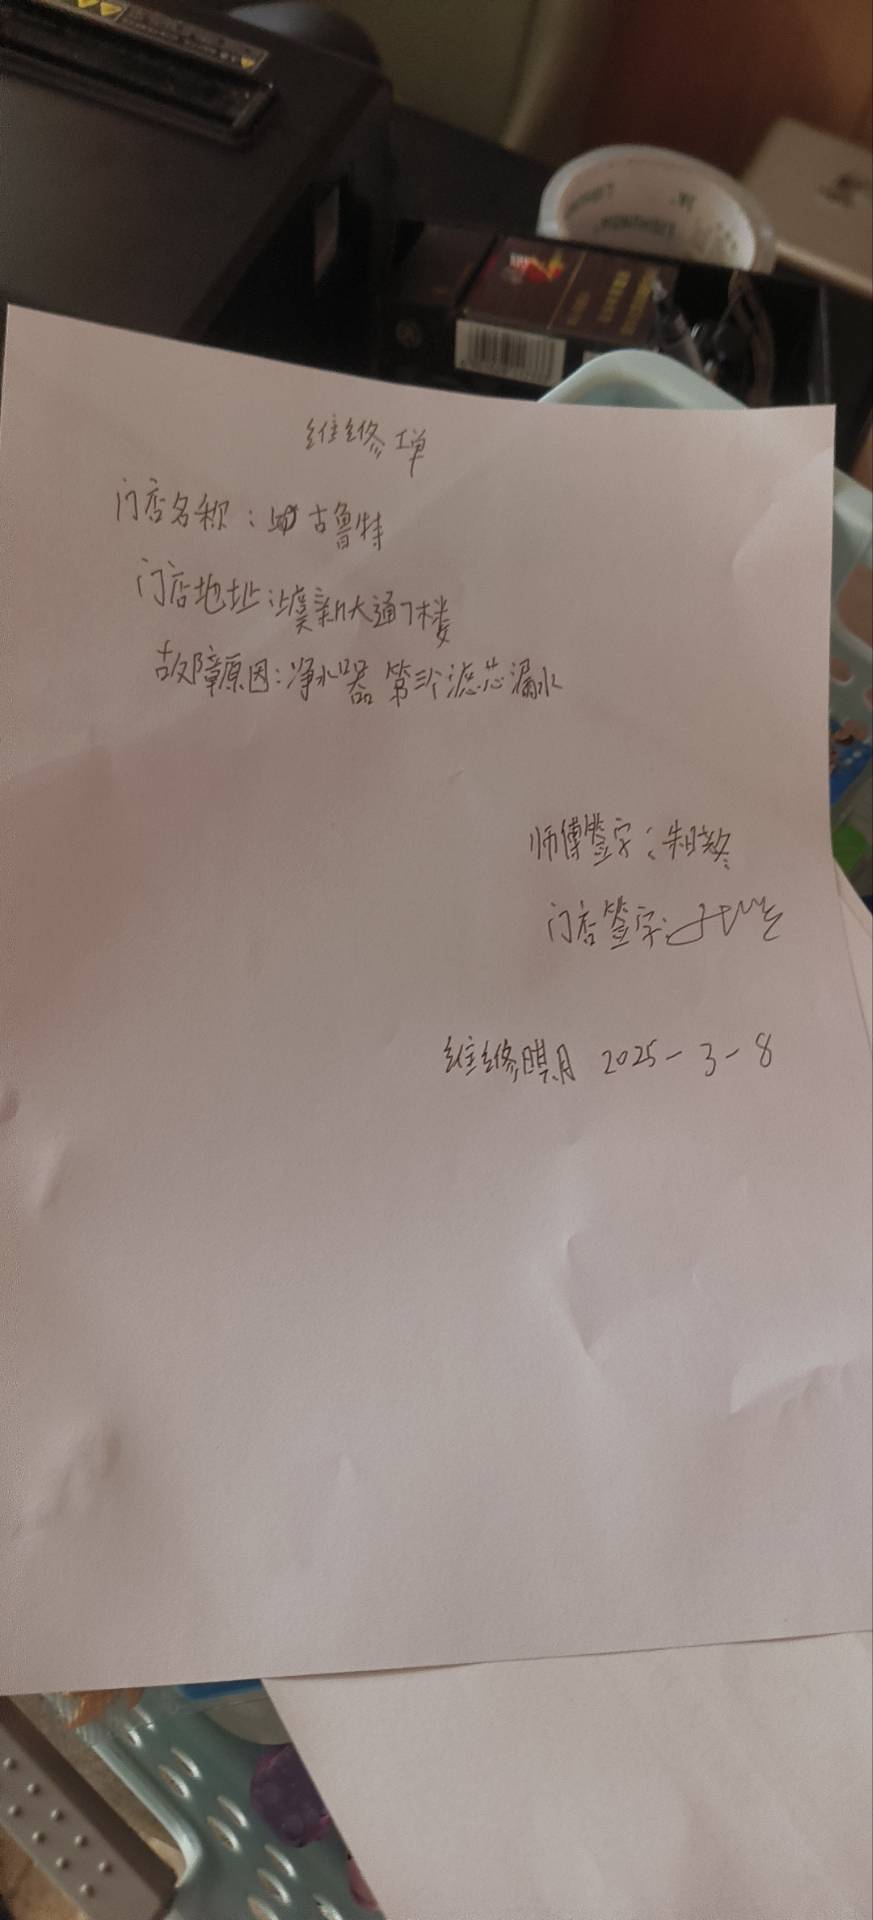 维修单
门店名称：古鲁特
门店地址：上虞新大通1楼
故障原因：净水器第三个滤芯漏水
师傅签字：朱
门店签字：
维修日期 2025-3-8